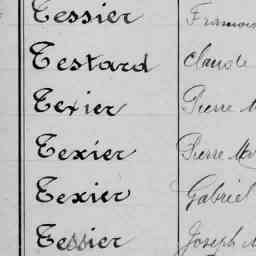 Tessier François
Testard Claude
Texier Pierre M
Texier Pierre Mar
Texier Gabriel
Tessier Joseph M